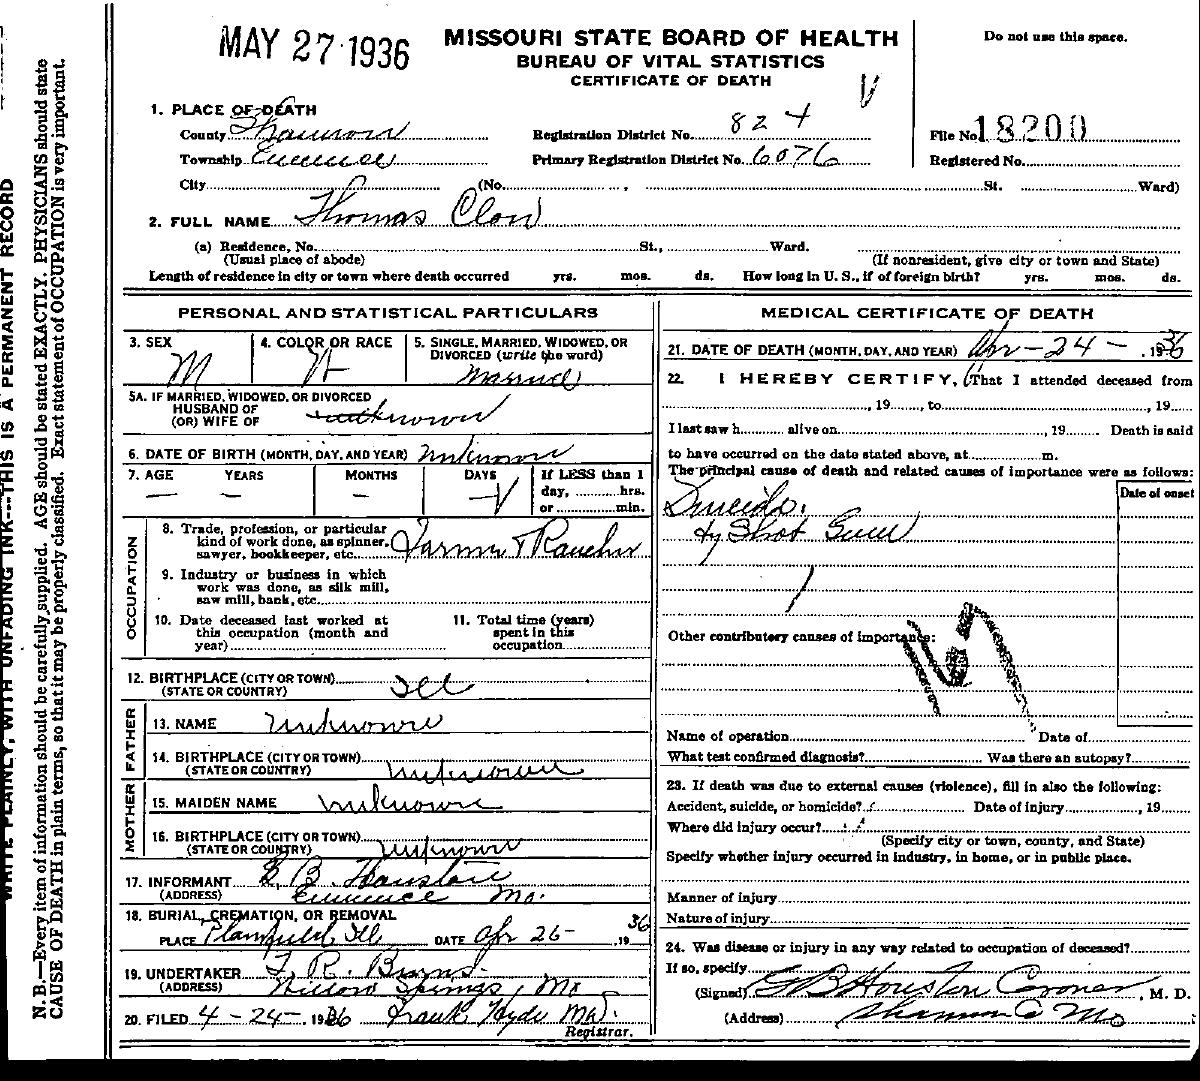 MAY 27 1936
MISSOURI STATE BOARD OF HEALTH
BUREAU OF VITAL STATISTICS
CERTIFICATE OF DEATH
Do not use this space.
1. PLACE OF DEATH
County Shannon
Township Eminence
Registration District No. 824
Primary Registration District No. 6076
File No. 18200
Registered No.
City (No. , St. Ward)
2. FULL NAME Thomas Clow
(a) Residence, No. St., Ward.
(Usual place of abode) (If nonresident, give city or town and State)
Length of residence in city or town where death occurred yrs. mos. ds. How long in U. S., if of foreign birth? yrs. mos. ds.
PERSONAL AND STATISTICAL PARTICULARS
3. SEX M
4. COLOR OR RACE W
5. SINGLE, MARRIED, WIDOWED, OR
DIVORCED (write the word)
Married
5A. IF MARRIED, WIDOWED, OR DIVORCED
HUSBAND OF
(OR) WIFE OF unknown
6. DATE OF BIRTH (MONTH, DAY, AND YEAR) unknown
7. AGE YEARS MONTHS DAYS If LESS than 1
day, hrs.
or min.
— — — —
OCCUPATION
8. Trade, profession, or particular
kind of work done, as spinner,
sawyer, bookkeeper, etc. Farmer & Rancher
9. Industry or business in which
work was done, as silk mill,
saw mill, bank, etc.
10. Date deceased last worked at
this occupation (month and
year)
11. Total time (years)
spent in this
occupation
12. BIRTHPLACE (CITY OR TOWN)
(STATE OR COUNTRY) Ill
FATHER
13. NAME unknown
14. BIRTHPLACE (CITY OR TOWN)
(STATE OR COUNTRY) unknown
MOTHER
15. MAIDEN NAME unknown
16. BIRTHPLACE (CITY OR TOWN)
(STATE OR COUNTRY) unknown
17. INFORMANT G. B. Houston
(ADDRESS) Eminence Mo.
18. BURIAL, CREMATION, OR REMOVAL
PLACE Plainfield, Ill DATE Apr 26 - , 1936
19. UNDERTAKER T. R. Burns
(ADDRESS) Willow Springs, Mo
20. FILED 4 - 24 - , 1936 Frank Hyde MD.
Registrar.
MEDICAL CERTIFICATE OF DEATH
21. DATE OF DEATH (MONTH, DAY, AND YEAR) Apr - 24 - , 1936
22. I HEREBY CERTIFY, That I attended deceased from
, 19 , to , 19
I last saw h alive on , 19 Death is said
to have occurred on the date stated above, at m.
The principal cause of death and related causes of importance were as follows:
Date of onset
Suicide.
by Shot Gun
Other contributory causes of importance:
Name of operation Date of
What test confirmed diagnosis? Was there an autopsy?
23. If death was due to external causes (violence), fill in also the following:
Accident, suicide, or homicide? Date of injury , 19
Where did injury occur?
(Specify city or town, county, and State)
Specify whether injury occurred in industry, in home, or in public place.
Manner of injury
Nature of injury
24. Was disease or injury in any way related to occupation of deceased?
If so, specify
(Signed) G B Houston Coroner , M. D.
(Address) Shannon Co Mo
WRITE PLAINLY, WITH UNFADING INK---THIS IS A PERMANENT RECORD
N. B.—Every item of information should be carefully supplied. AGE should be stated EXACTLY. PHYSICIANS should state
CAUSE OF DEATH in plain terms, so that it may be properly classified. Exact statement of OCCUPATION is very important.